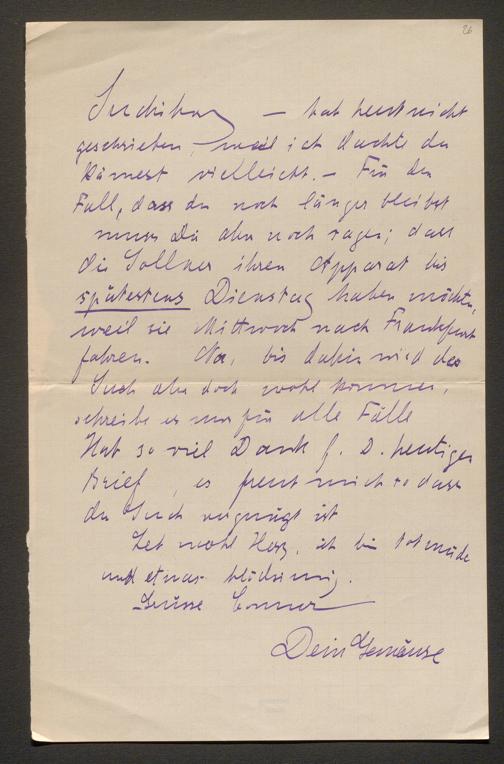 26
— hab heut nicht
geschrieben, weil ich dachte du
kämest vielleicht. — Für den
Fall, dass du noch länger bleibst
muss Dir aber noch sagen; dass
die Sollner ihren Apparat bis
spätestens Dienstag haben möchten,
weil sie Mittwoch nach Frankfurt
fahren. Na, bis dahin wird das
Such aber doch wohl kommen,
schreibe es nur für alle Fälle
Hab so viel Dank f. D. heutigen
Brief, es freut mich so dass
du Such vergnügt ist
Leb wohl Herz, ich bin totmüde
und etwas blödsinnig.
Grüsse
Dein Gemäuse